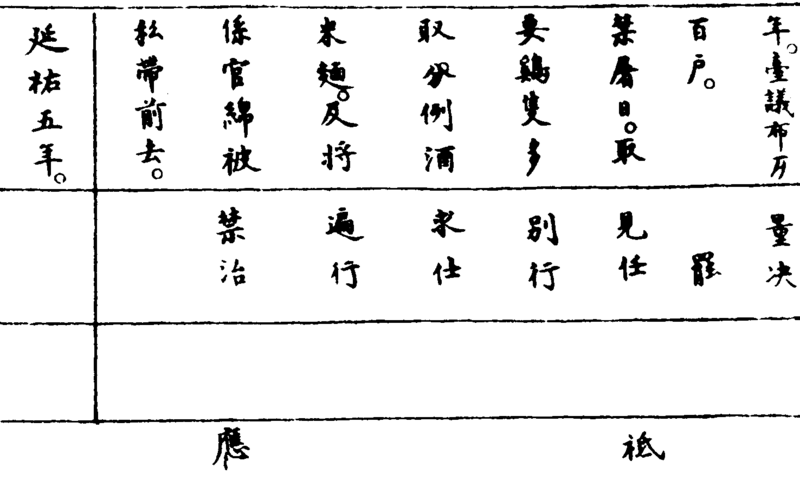 年。臺議布
百户。
禁曆日。取
要鷄隻多
取分例酒
米麵。反將
係官綿被
松帶前去。
延祐五年。
量决
罷
見任
別行
求仕
遍行
禁治
祗應